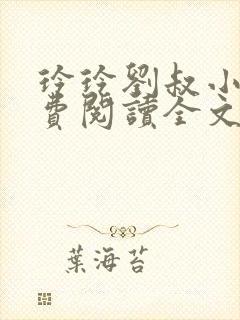 玲玲劉叔小
費閱讀全文
葉海苔